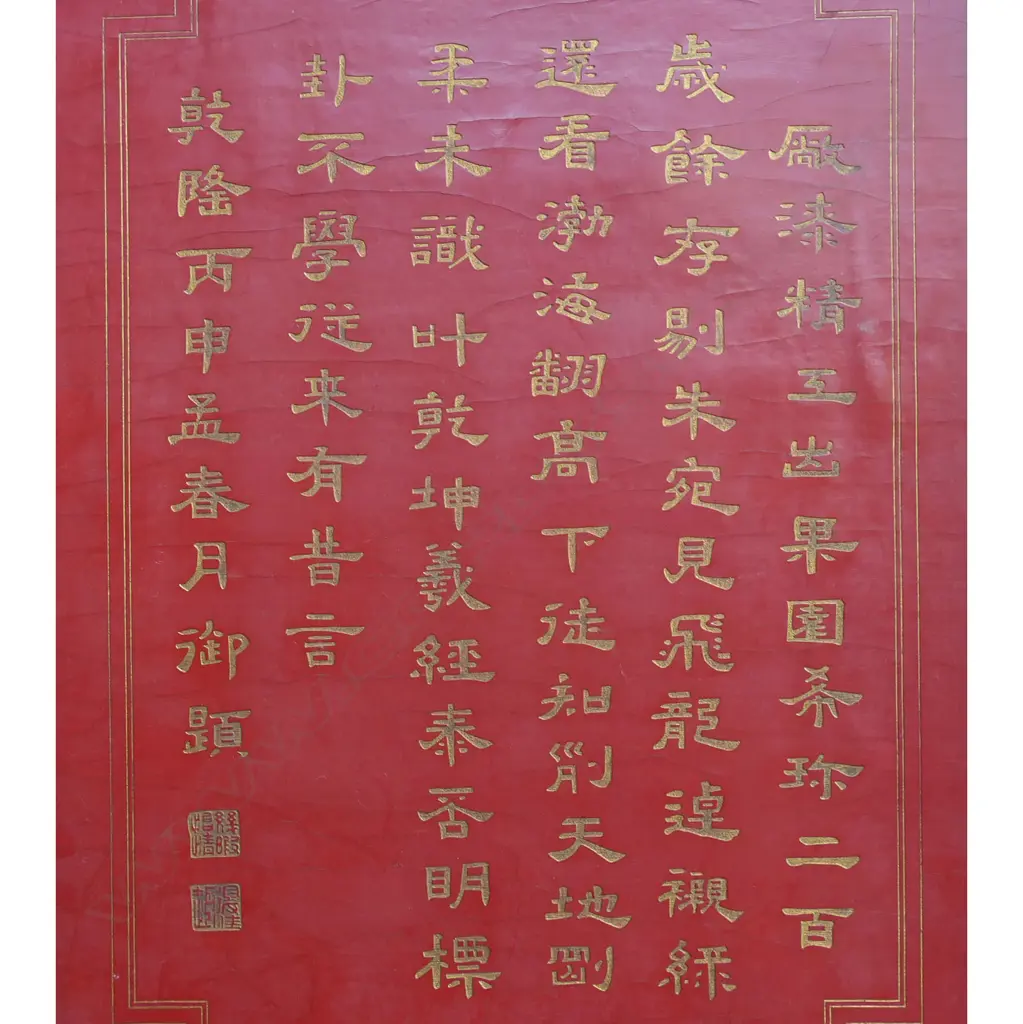 廠漆精工出果園希珍二百
歲餘存剔朱宛見飛龍逴襯綠
還看渤海翻高下徒知削天地剛
柔未識叶乾坤羲經泰否明標
卦不學従来有昔言
乾隆丙申孟春月御題
幾暇怡情